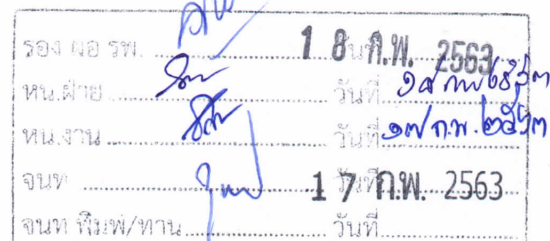 รอง ผอ รพ. วันที่ 18 ก.พ. 2563
หน.ฝ่าย วันที่
หน.งาน วันที่ ๑๗ ก.พ. ๒๕๖๓
จนท วันที่ 17 ก.พ. 2563
จนท พิมพ์/ทาน วันที่